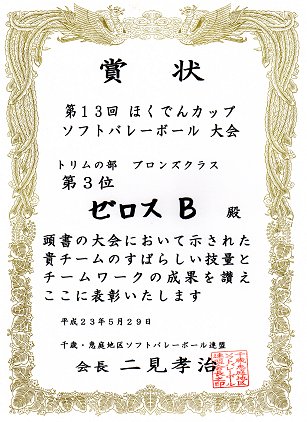 賞状
第13回 ほくでんカップ
ソフトバレーボール 大会
トリムの部 ブロンズクラス
第3位
ゼロス B 殿
頭書の大会において示された
貴チームのすばらしい技量と
チームワークの成果を讃え
ここに表彰いたします
平成23年5月29日
千歳・恵庭地区ソフトバレーボール連盟
会長 二見孝治